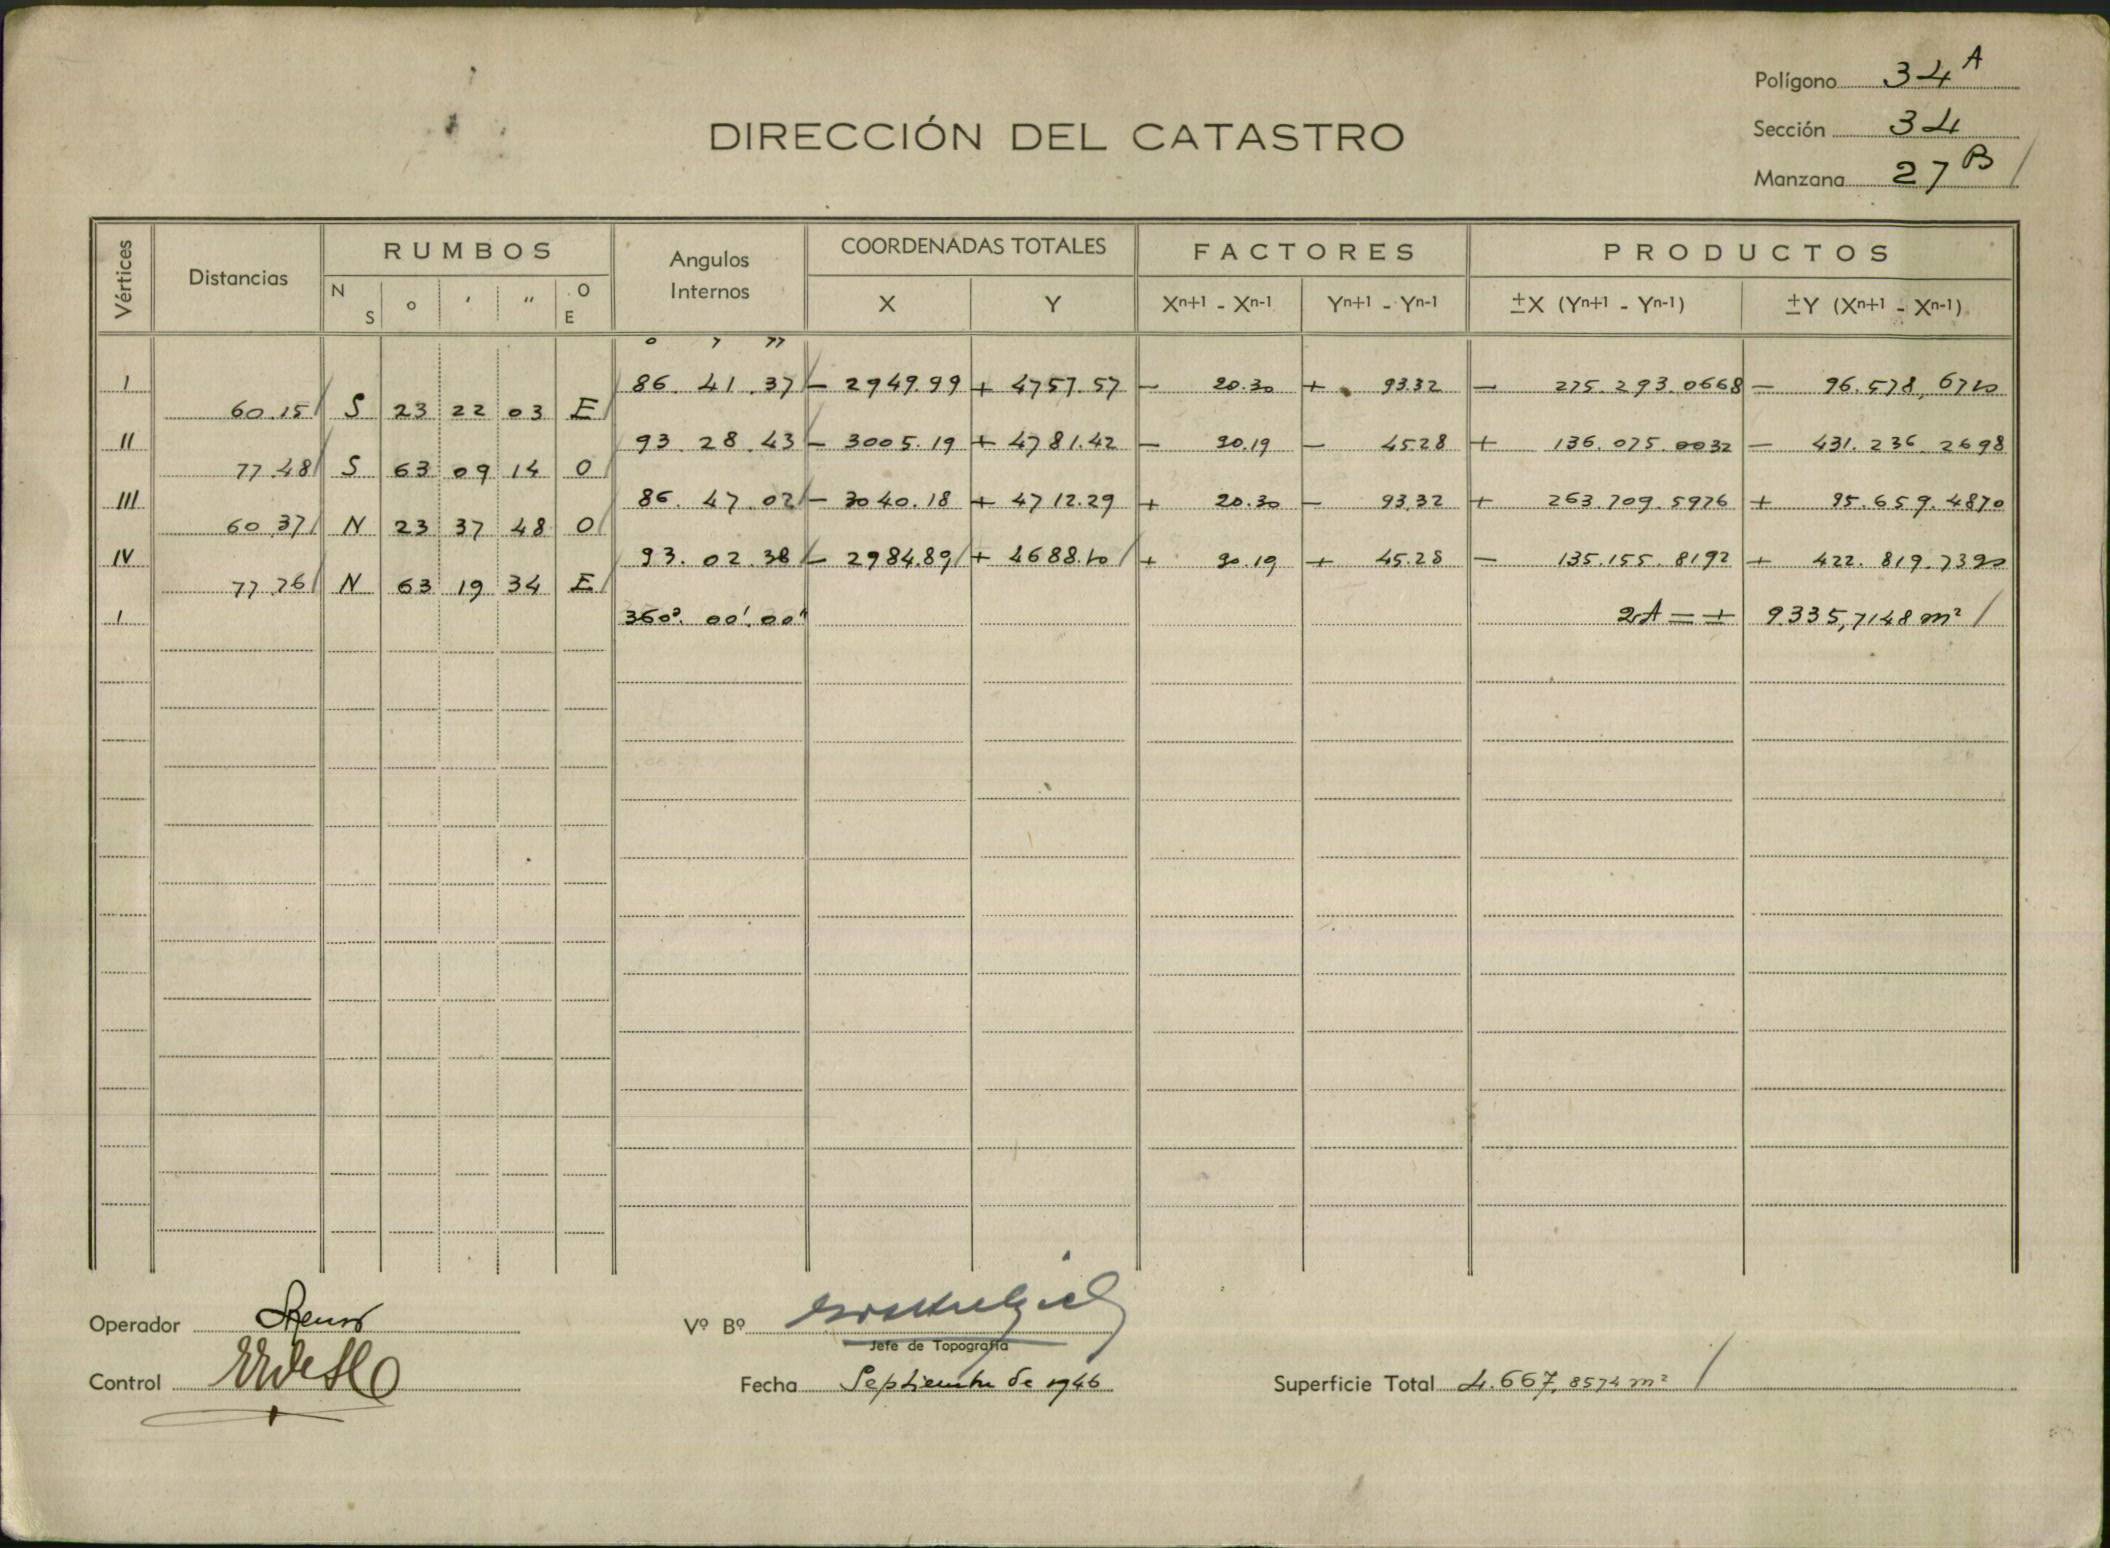 Polígono 34 A
Sección 34
Manzana 27 B /
DIRECCIÓN DEL CATASTRO
Vértices Distancias RUMBOS Angulos Internos COORDENADAS TOTALES FACTORES PRODUCTOS
N S o ' " O E X Y Xn+1 - Xn-1 Yn+1 - Yn-1 ±X (Yn+1 - Yn-1) ±Y (Xn+1 - Xn-1)
o ' "
I 86. 41. 37 - 2949.99 + 4757.57 - 20.30 + 93.32 - 275.293.0668 - 96.578,6710
60.15 S 23 22 03 E
II 93. 28. 43 - 3005.19 + 4781.42 - 90.19 - 45.28 + 136.075.0032 - 431.236.2698
77.48 S 63 09 14 O
III 86. 47. 02 - 3040.18 + 4712.29 + 20.30 - 93.32 + 283.709.5976 + 95.659.4870
60.37 N 23 37 48 O
IV 93. 02. 38 - 2984.89 + 4688.10 + 90.19 + 45.28 - 135.155.8192 + 422.819.7390
77.76 N 63 19 34 E
I 360° 00' 00" 2A = + 9.335,7148 m² /
Operador
Control
Vº Bº
Jefe de Topografía
Fecha Septiembre de 1946
Superficie Total 4.667,8574 m² /